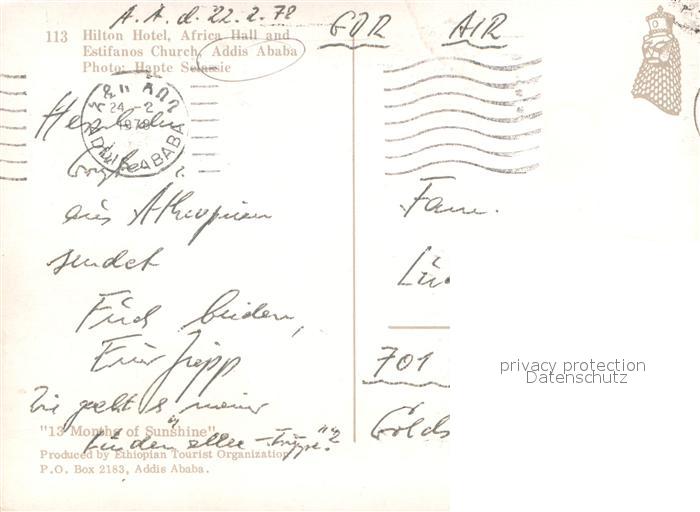 A.A.d. 22.2.78
GDR AIR
113 Hilton Hotel, Africa Hall and
Estifanos Church, Addis Ababa
Photo: Hapte Selassie
24 -2
1978
ADDIS ABABA
Herzliche
Grüße
aus Äthiopien
sendet
Euch beiden,
Euer Jupp
Wie geht's meiner
"13 Months of Sunshine"
Produced by Ethiopian Tourist Organization
P.O. Box 2183, Addis Ababa.
Fam.
Lü
701
Golds
privacy protection
Datenschutz